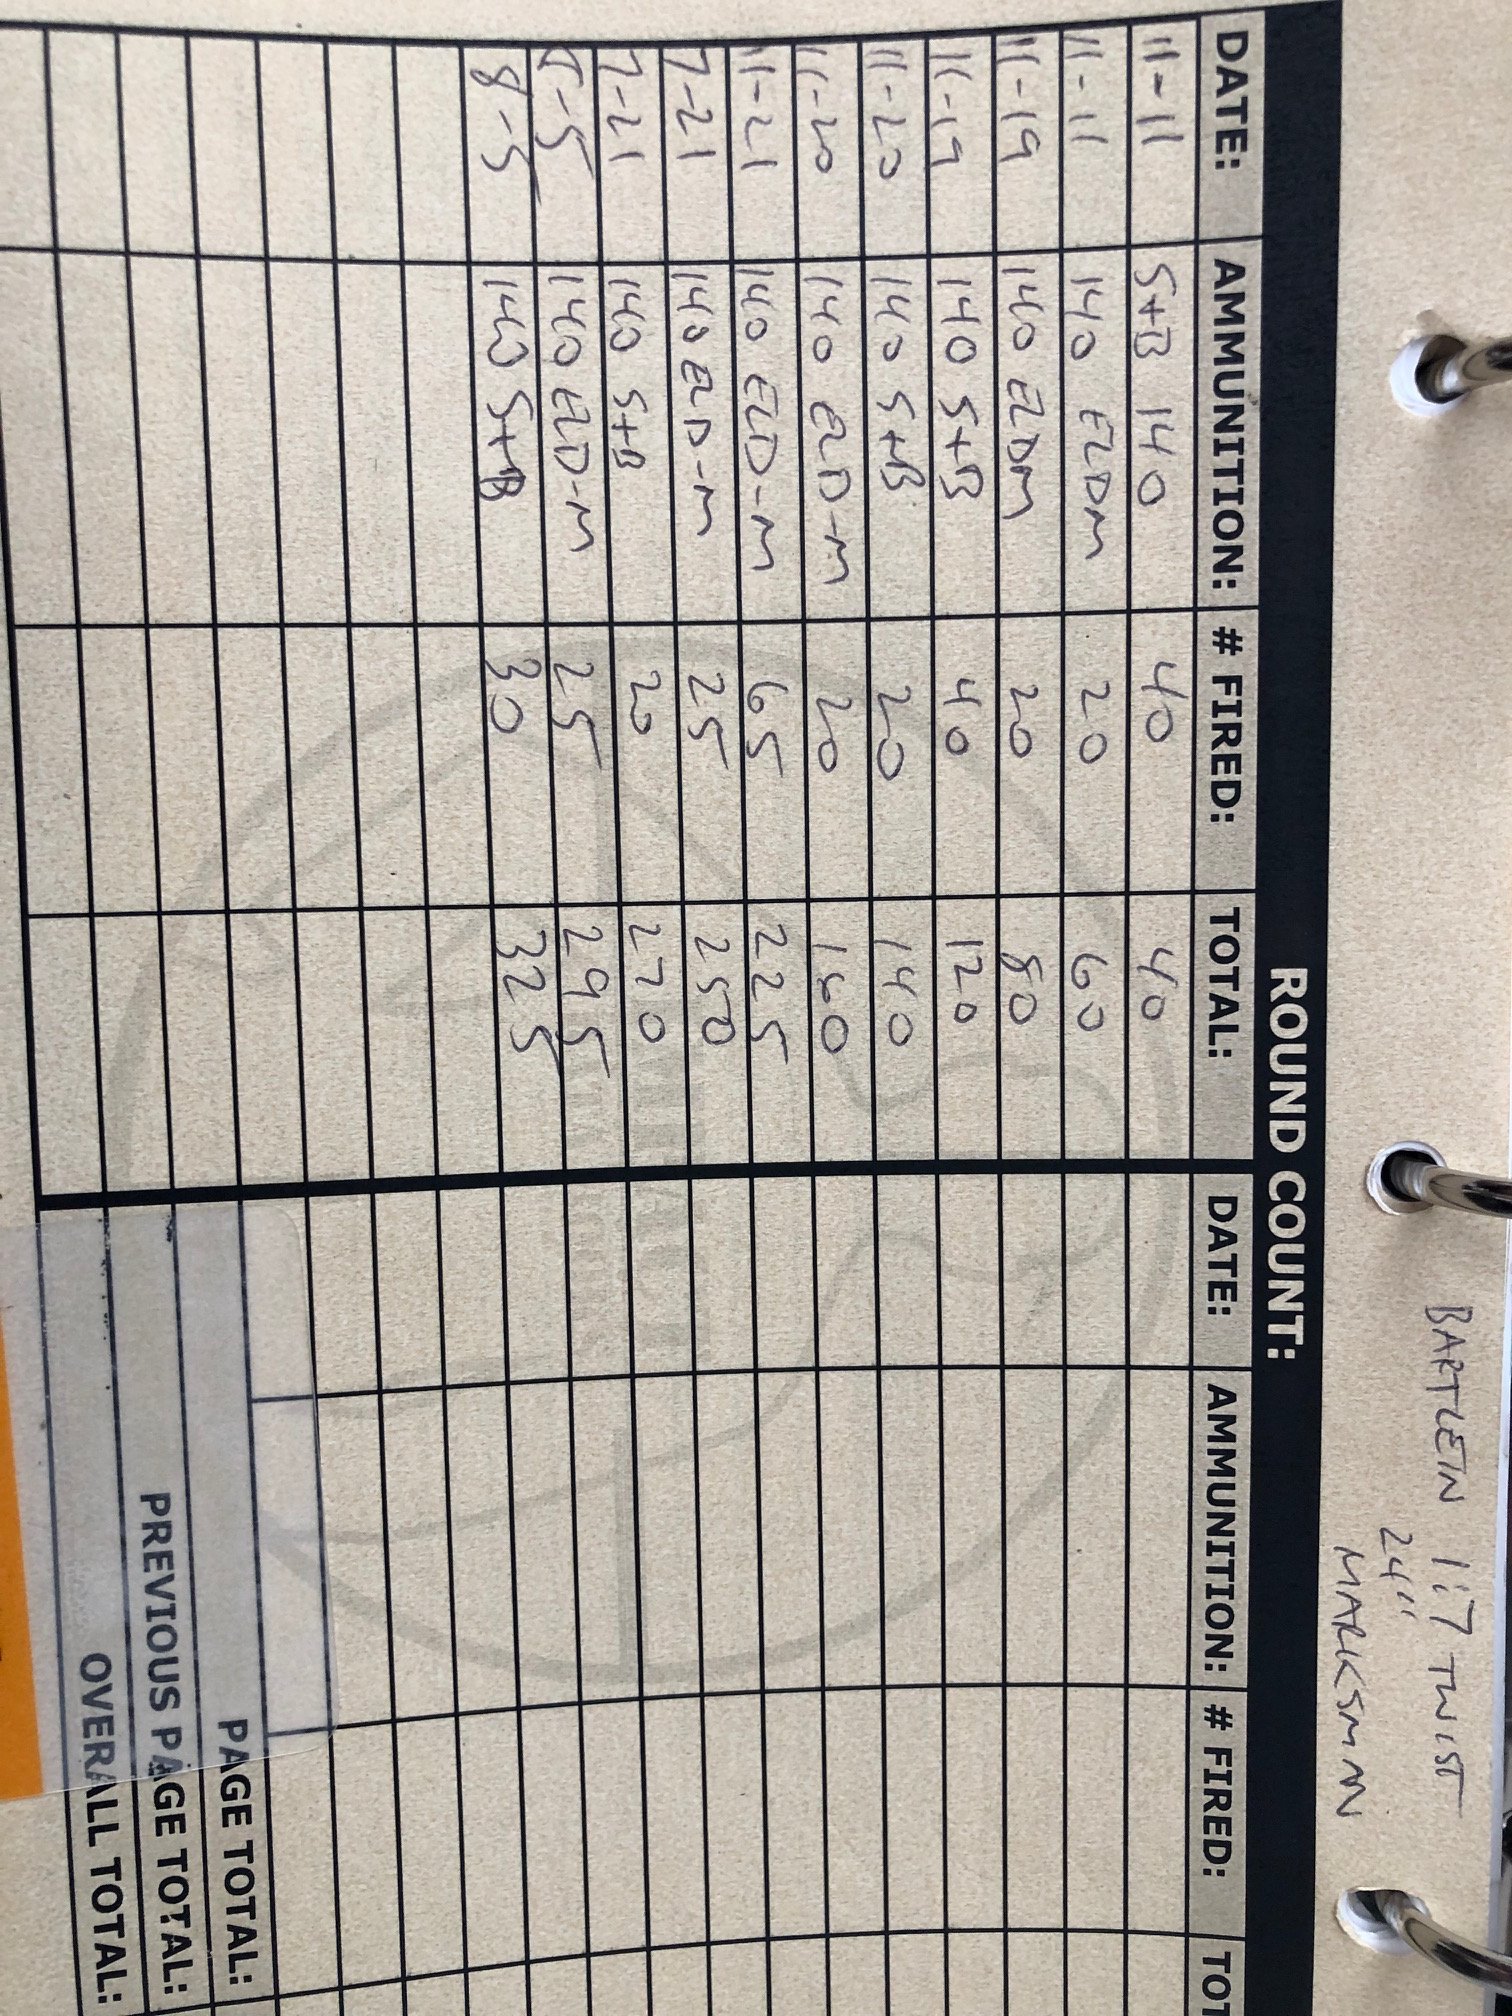 BARTLEIN 1:7 TWIST
24"
MARKSMAN
ROUND COUNT:
DATE: AMMUNITION: # FIRED: TOTAL: DATE: AMMUNITION: # FIRED: TOT
11-11 S+B 140 40 40
11-11 140 ELDM 20 60
11-19 140 ELDM 20 80
11-19 140 S+B 40 120
11-20 140 S+B 20 140
11-20 140 ELD-M 20 160
11-21 140 ELD-M 65 225
7-21 140 ELD-M 25 250
7-21 140 S+B 20 270
8-5 140 ELD-M 25 295
8-5 140 S+B 30 325
PAGE TOTAL:
PREVIOUS PAGE TOTAL:
OVERALL TOTAL: